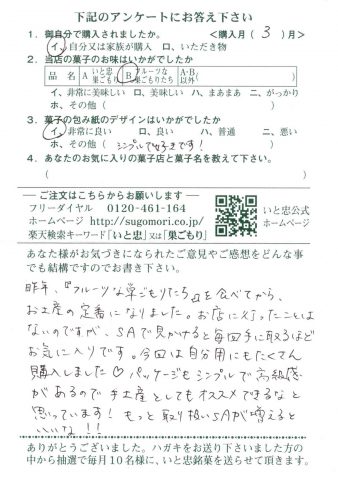 下記のアンケートにお答え下さい
1．御自分で購入されましたか。　＜購入月（ 3 ）月＞
イ、自分又は家族が購入　ロ、いただき物
2．当店の菓子のお味はいかがでしたか
品　名　A いと忠巣ごもり　B フルーツな巣ごもりたち　A・B以外（　　　）
イ、非常に美味しい　ロ、美味しい　ハ、まあまあ　ニ、がっかり
ホ、その他（　　　）
3．菓子の包み紙のデザインはいかがでしたか
イ、非常に良い　ロ、良い　ハ、普通　ニ、悪い
ホ、その他（ シンプルで好きです！ ）
4．あなたのお気に入りの菓子店と菓子名を教えて下さい。
（　　　）
― ご注文はこちらからお願いします ―
フリーダイヤル　0120-461-164
ホームページ　http://sugomori.co.jp/
楽天検索キーワード「いと忠」又は「巣ごもり」
いと忠公式
ホームページ
あなた様がお気づきになられたご意見やご感想をどんな事
でも結構ですのでお書き下さい。
昨年、『フルーツな巣ごもりたち』を食べてから、
お土産の定番になりました。お店に行ったことは
ないのですが、SAで見かけると毎回手に取るほど
お気に入りです。今回は自分用にもたくさん
購入しました♡パッケージもシンプルで高級感
があるので手土産としてもオススメできるなと
思っています！もっと取り扱いSAが増えると
いいな！！
ありがとうございました。ハガキをお送り下さいました方の
中から抽選で毎月10名様に、いと忠銘菓を送らせて頂きます。